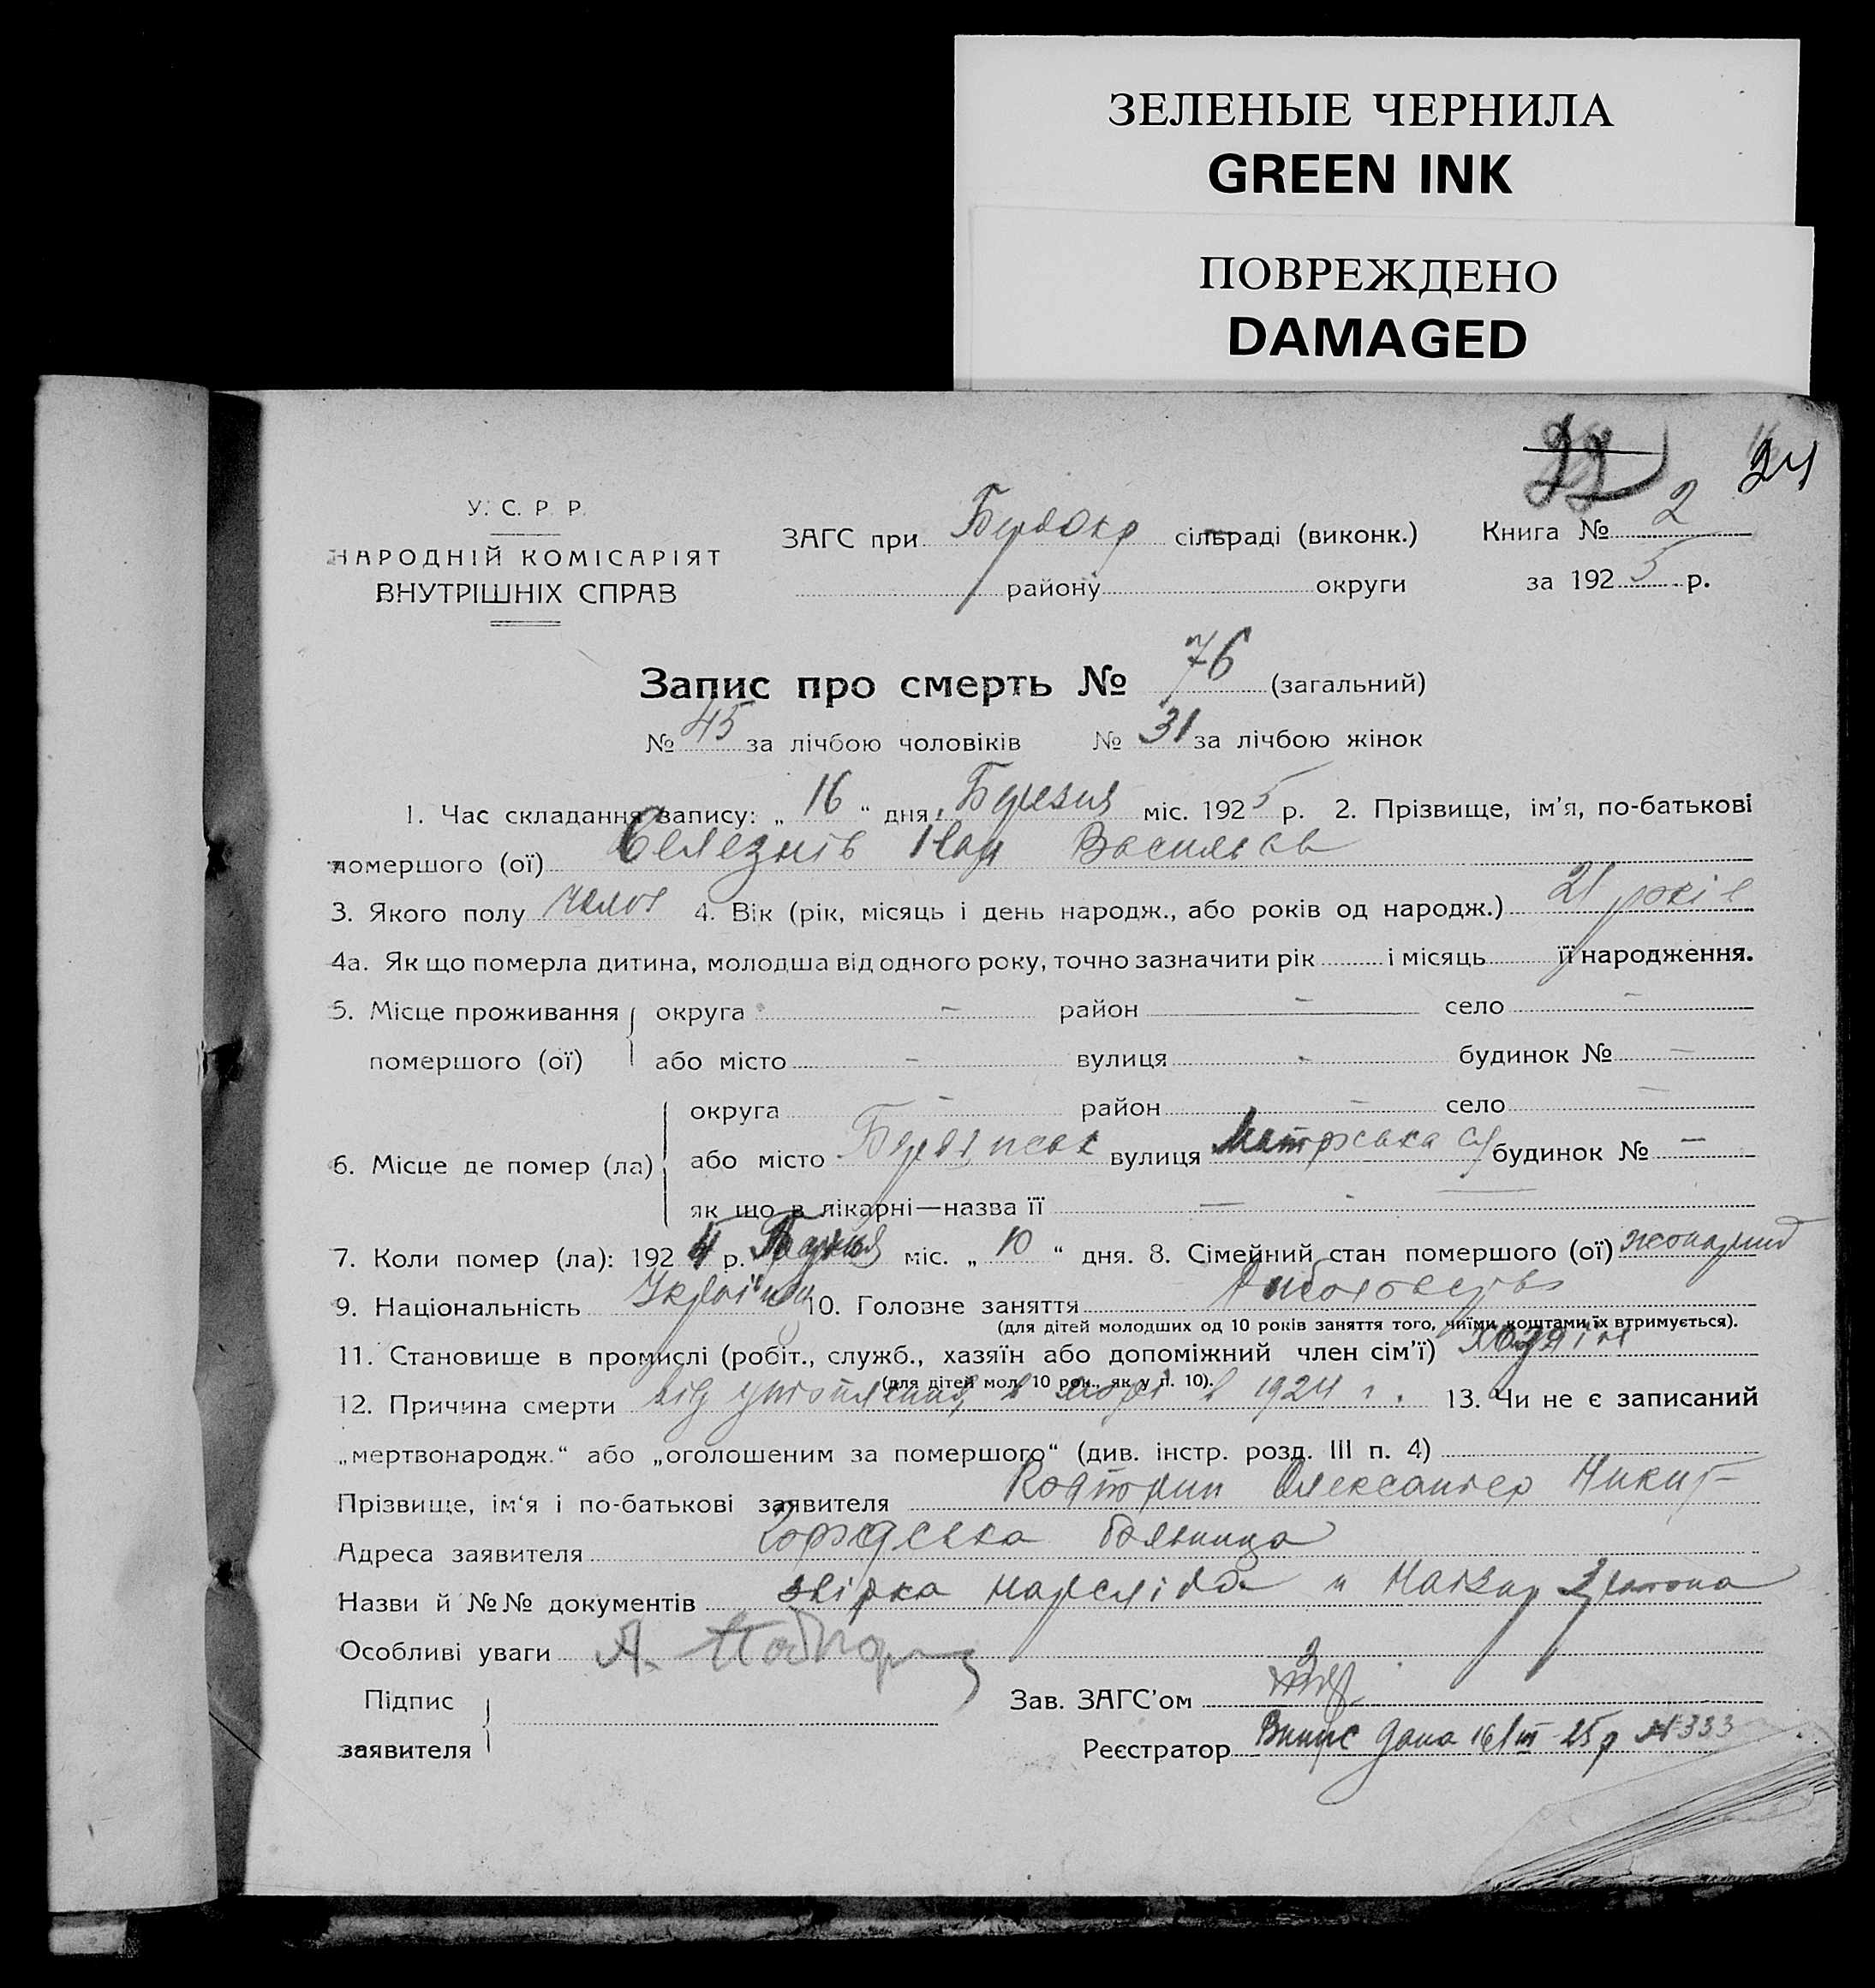 ЗЕЛЕНЫЕ ЧЕРНИЛА
GREEN INK
ПОВРЕЖДЕНО
DAMAGED
22 24
У. С. Р. Р.
НАРОДНІЙ КОМІСАРІЯТ
ВНУТРІШНІХ СПРАВ
ЗАГС при сільраді (виконк.)
району округи
Книга № 2
за 1925 р.
Запис про смерть № 76 (загальний)
№ 45 за лічбою чоловіків № 31 за лічбою жінок
1. Час складання запису: „ 16 “ дня Березня міс. 1925 р. 2. Прізвище, ім’я, по-батькові
помершого (ої) Селезнів Іван
3. Якого полу 4. Вік (рік, місяць і день народж., або років од народж.) 21 років
4а. Як що померла дитина, молодша від одного року, точно зазначити рік і місяць її народження.
5. Місце проживання округа – район – село –
помершого (ої) або місто – вулиця – будинок № –
округа – район – село –
6. Місце де помер (ла) або місто вулиця будинок № –
як що в лікарні—назва її –
7. Коли помер (ла): 1924 р. міс. „ 10 “ дня. 8. Сімейний стан помершого (ої)
9. Національність 10. Головне заняття
(для дітей молодших од 10 років заняття того, чиїми коштами їх втримується).
11. Становище в промислі (робіт., служб., хазяїн або допоміжний член сім’ї)
(для дітей мол. 10 рок., як у п. 10).
12. Причина смерти від утоплення в морі в 1924 г. 13. Чи не є записаний
„мертвонародж.“ або „оголошеним за помершого“ (див. інстр. розд. III п. 4)
Прізвище, ім’я і по-батькові заявителя Олександер Никит
Адреса заявителя больница
Назви й №№ документів
Особливі уваги
Підпис
заявителя
Зав. ЗАГС’ом
Реєстратор Випис дана 16/III-25 р №333